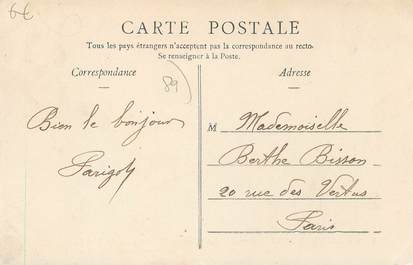 6€
CARTE POSTALE
Tous les pays étrangers n'acceptent pas la correspondance au recto.
Se renseigner à la Poste.
Correspondance
Adresse
89
Bien le bonjour
M Mademoiselle
Berthe Bisson
20 rue des Vertus
Paris